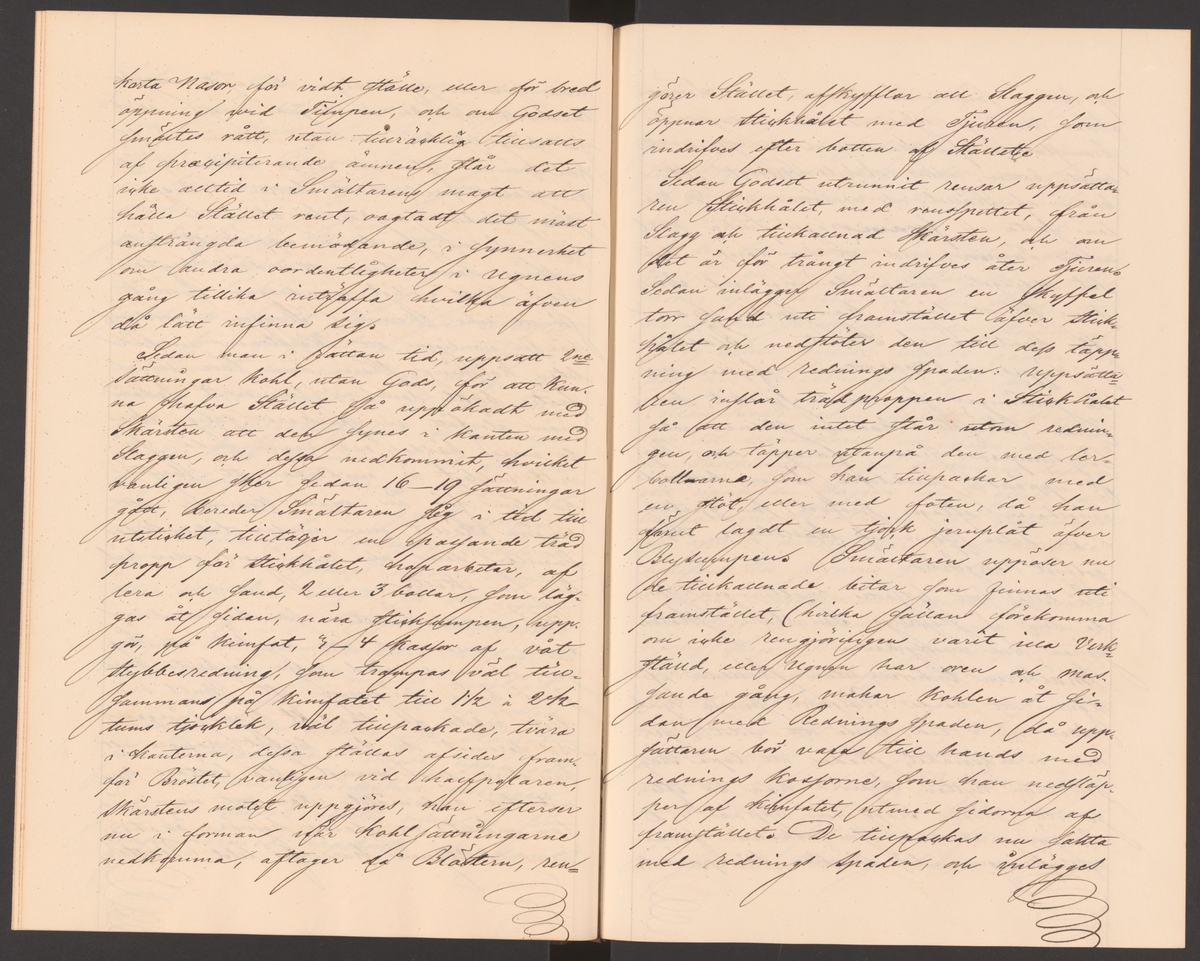 korta Nason, för vidt ställe, eller för bred
öppning vid Timpen, och om Godset
smältes rått, utan tillräcklig tillsatts
af præcipiterande ämnen, står det
icke alltid i Smältarens magt att
hålla Stället rent, oagtadt det mäst
ansträngda bemödande, i synnerhet
om andra oordentligheter i Ugnens
gång tillika inträffa hvilka äfven
då lätt infinna sig.
Sedan man i sådan tid, uppsatt 2ne
Sättningar Kohl, utan Gods, för att kun-
na hafva Stället så uppökadt med
Skärsten att den synes i kanten med
Slaggen, och dessa nedkommit, hvilket
vanligen sker sedan 16–19 sättningar
gått, bereder Smältaren sig i tid till
utsticket, tilltäljer en passande träd
propp för stickhålet, hoparbetar, af
lera och sand, 2 eller 3 bollar, som läg-
gas åt sidan, nära sticksumpen, upp-
gör, på kimfat, 3–4 kassor af våt
stybbesredning, som trampas väl till-
sammans på kimfatet till 1 1/2 à 2 1/2
tums tjocklek, väl tillpackade, tvära
i kanterna, dessa ställas afsides fram-
för Bröstet, vanligen vid halfpelaren,
Skärstens målet uppgöres, han efterser
nu i forman når Kohlsättningarne
nedkomma, aftager då Blästern, ren-
görer Stället, afskyfflar all Slaggen, och
öppnar stickhålet med Tjuren, som
indrifves efter botten af Stället.
Sedan Godset utrunnit rensar uppsätta-
ren Stickhålet, med renspettet, från
Slagg och tillkallnad Skärsten, och om
det är för trångt indrifves åter Tjuren.
Sedan inlägger Smältaren en skyffel
torr sand uti framstället öfver stick-
hålet och nedstöter den till dess täpp-
ning med rednings spaden: uppsätta-
ren inslår trädproppen i Stickhålet
så att den intet står utom rednin-
gen, och täpper utanpå den med ler-
bollarna, som han tillpackar med
en stöt, eller med foten, då han
förut lagdt en tjock jernplåt öfver
Blysumpen. Smältaren uppöser nu
de tillkallnade bitar som finnas uti
framstället, (hvilka sällan förekomma
om icke rengjöringen varit illa Verk-
ställd, eller Ugnen har oren och
gång, makar kohlen åt si-
dan med Rednings spaden, då upp-
sättaren bör vara till hands med
rednings kassorne, som han nedsläp-
per af kimfatet, utmed sidorna af
framstället. De tillpackas nu sakta
med rednings spaden, och inlägges